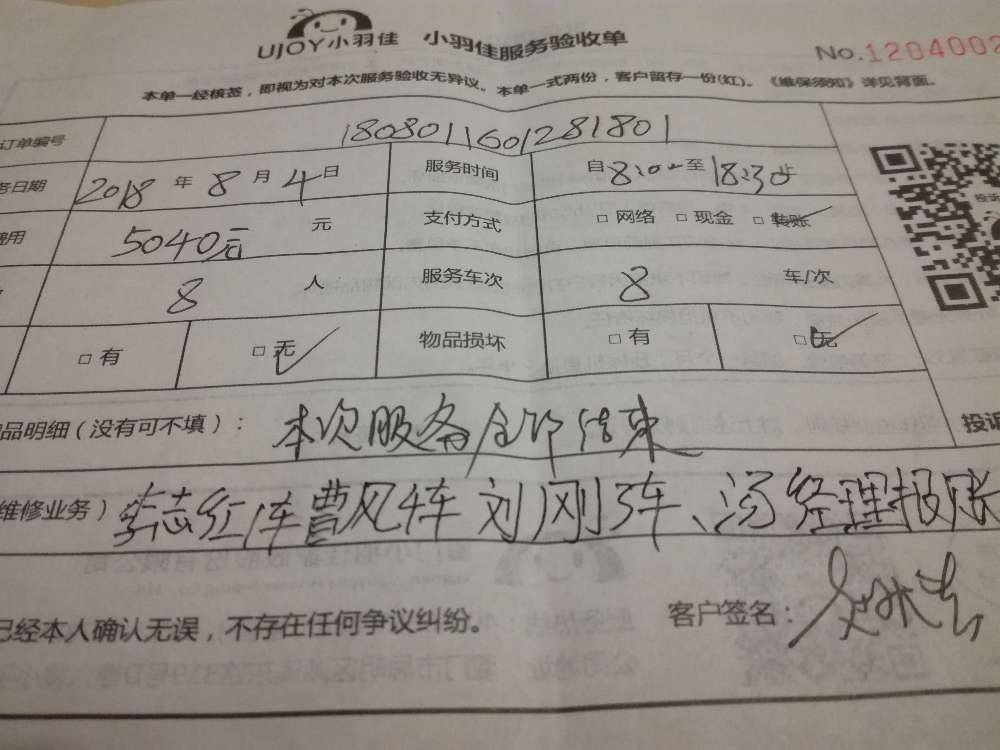 UJOY小羽佳 小羽佳服务验收单
No.1204002
本单一经核签，即视为对本次服务验收无异议。本单一式两份，客户留存一份(红)。《维保须知》详见背面。
订单编号 1808011601281801
务日期 2018 年 8 月 4 日 服务时间 自8:00至18:30
费用 5040元 元 支付方式 □ 网络 □ 现金 □ 转账
8 人 服务车次 8 车/次
□ 有 □ 无 物品损坏 □ 有 □ 无
品明细（没有可不填）： 本次服务全部结束
投诉
维修业务） 李志红1车曹风4车刘刚3车、冯经理报账
已经本人确认无误，不存在任何争议纠纷。 客户签名：